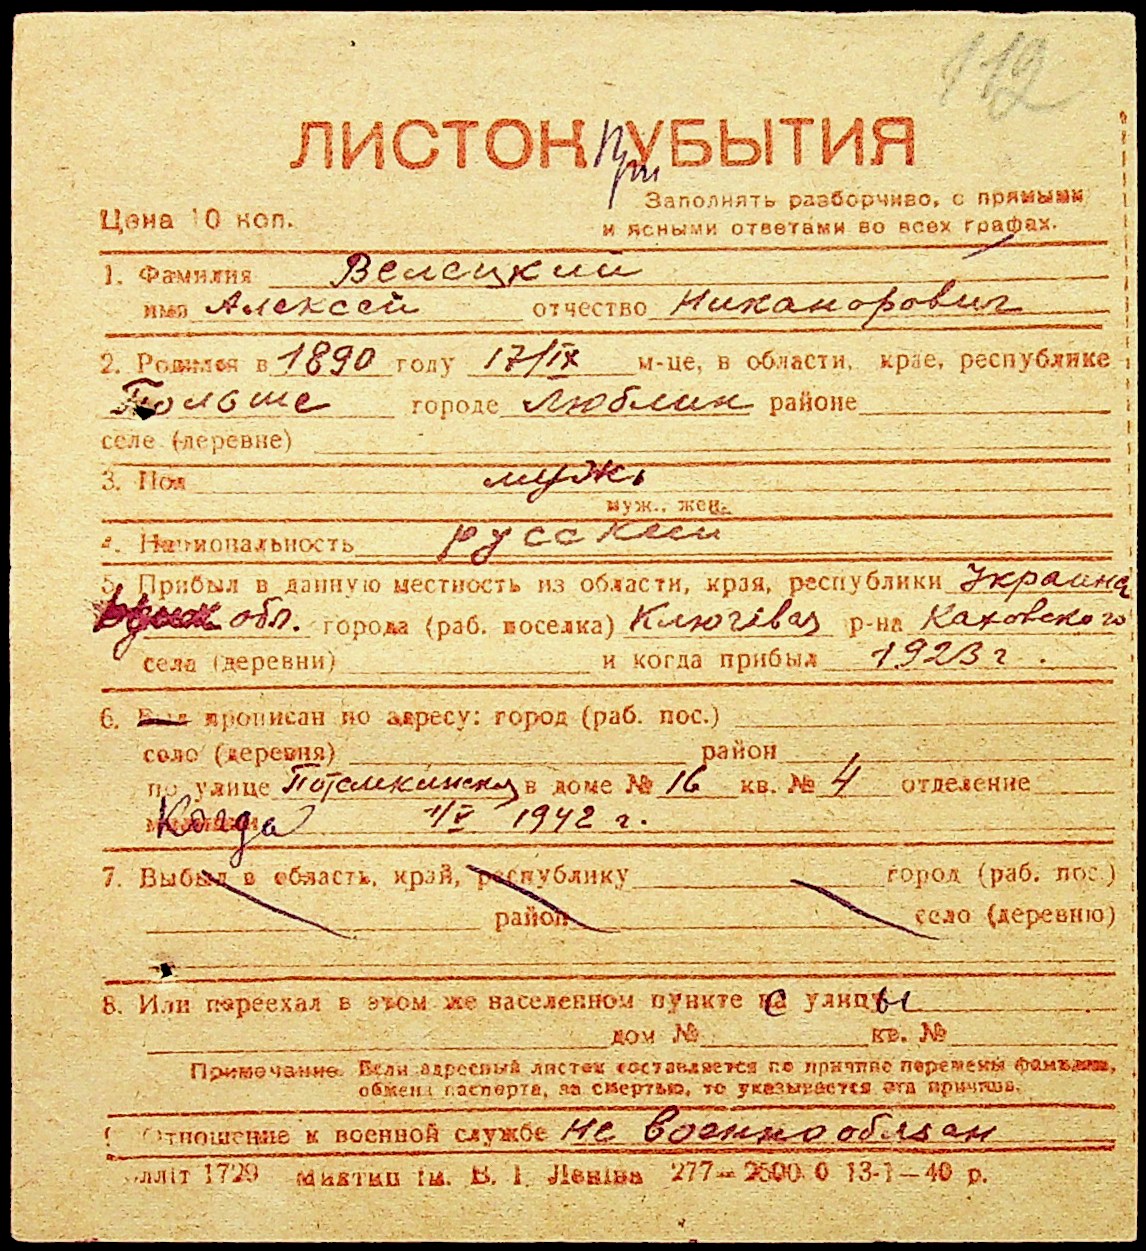 112
ЛИСТОК При УБЫТИЯ
Цена 10 коп.
Заполнять разборчиво, с прямыми
и ясными ответами во всех графах.
1. Фамилия Велецкий
имя Алексей отчество Никанорович
2. Родился в 1890 году 17/IX м-це, в области, крае, республике
Польше городе Люблин районе
селе (деревне)
3. Пол мужь
муж., жен.
4. Национальность русский
5. Прибыл в данную местность из области, края, республики Украина
обл. города (раб. поселка) Ключевая р-на Каховского
села (деревни) и когда прибыл 1923 г.
6. Был прописан по адресу: город (раб. пос.)
село (деревня) район
по улице Потемкинская в доме № 16 кв. № 4 отделение
Когда 1/V 1942 г.
7. Выбыл в область, край, республику город (раб. пос.)
район село (деревню)
8. Или переехал в этом же населенном пункте с улицы
дом № кв. №
Примечание. Если адресный листок составляется по причине перемены фамилии,
обмена паспорта, за смертью, то указывается эта причина.
9. Отношение к военной службе не военнообязан
лліт 1729 Миктип ім. В. І. Леніна 277—2500 0 13-1—40 р.